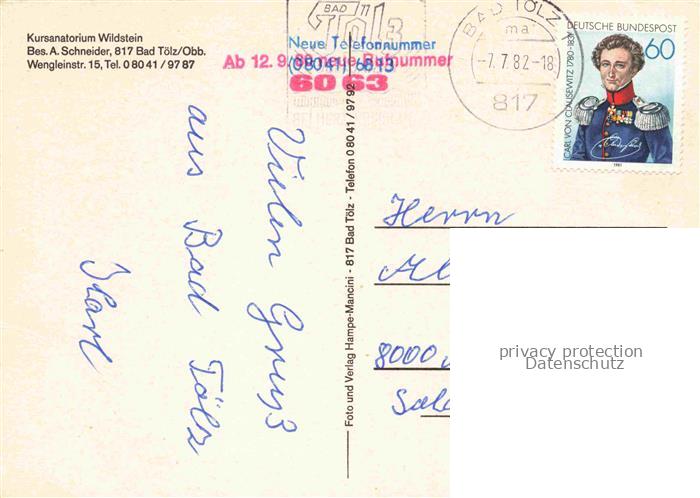 Kursanatorium Wildstein
Bes. A. Schneider, 817 Bad Tölz/Obb.
Wengleinstr. 15, Tel. 0 80 41 / 97 87
BAD
TÖLZ
Neue Telefonnummer
(08041) 6813
Ab 12. 9. 80 neue Rufnummer
60 63
BAD TÖLZ
ma
-7.7.82-18
817
DEUTSCHE BUNDESPOST
60
CARL VON CLAUSEWITZ 1780-1831
1981
Vielen Gruß
aus Bad Tölz
Karl
Foto und Verlag Hampe-Mancini - 817 Bad Tölz - Telefon 0 80 41 / 97 92
Herrn
Al
8000
Sale
privacy protection
Datenschutz